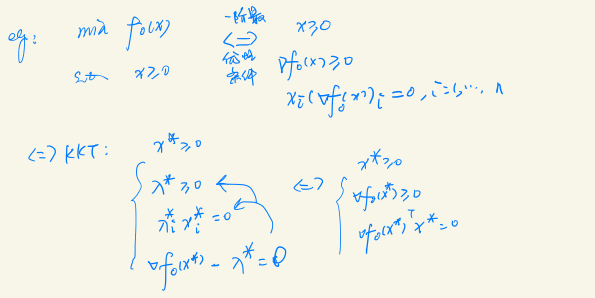 eg: min f₀(x) 一阶最优性条件 <=> x≥0
s.t. x≥0 ∇f₀(x)≥0
xᵢ(∇f₀(x))ᵢ=0, i=1,⋯, n
<=> KKT: x*≥0
λ*≥0
λᵢ*xᵢ*=0
∇f₀(x*) - λ*=0
<=> x*≥0
∇f₀(x*)≥0
∇f₀(x*)ᵀx*=0